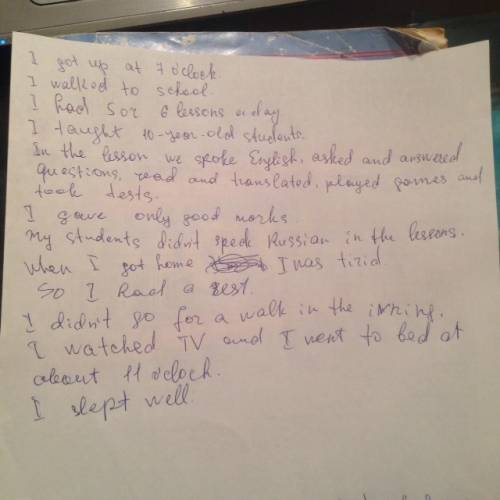 I got up at 7 o'clock.
I walked to school.
I had 5 or 6 lessons a day
I taught 10-year-old students.
In the lesson we spoke English, asked and answered
questions, read and translated, played games and
took tests.
I gave only good marks
My students didn't speak Russian in the lessons.
When I got home I was tirid
So I had a rest.
I didn't go for a walk in the ivning.
I watched TV and I went to bed at
about 11 o'clock.
I slept well.